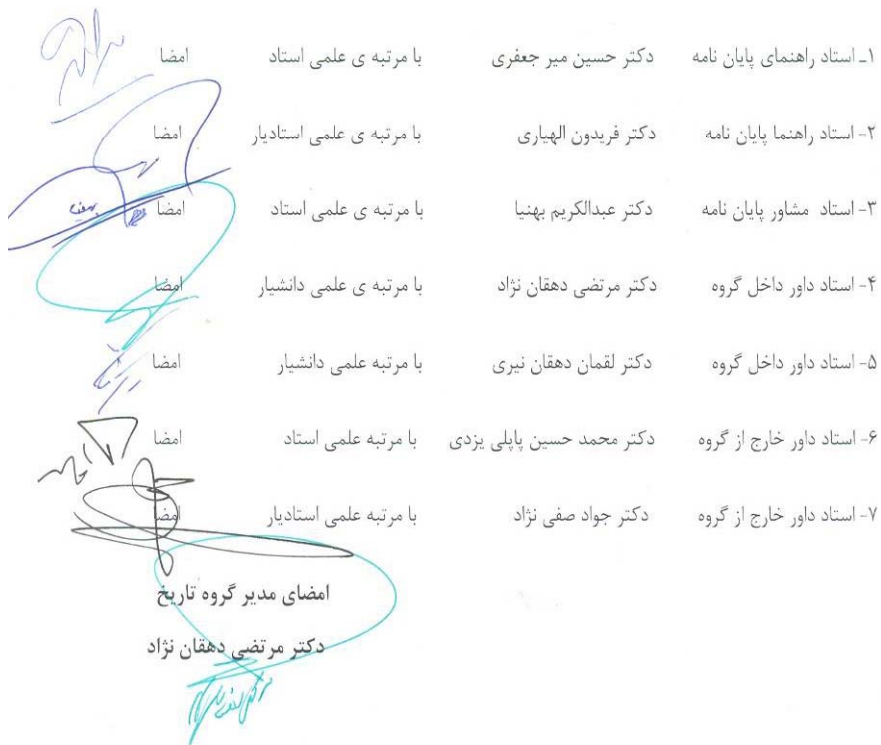 ۱ـ استاد راهنمای پایان نامه دکتر حسین میر جعفری با مرتبه ی علمی استاد امضا
۲- استاد راهنما پایان نامه دکتر فریدون الهیاری با مرتبه ی علمی استادیار امضا
۳- استاد مشاور پایان نامه دکتر عبدالکریم بهنیا با مرتبه ی علمی استاد امضا
۴- استاد داور داخل گروه دکتر مرتضی دهقان نژاد با مرتبه ی علمی دانشیار امضا
۵- استاد داور داخل گروه دکتر لقمان دهقان نیری با مرتبه علمی دانشیار امضا
۶- استاد داور خارج از گروه دکتر محمد حسین پاپلی یزدی با مرتبه علمی استاد امضا
۷- استاد داور خارج از گروه دکتر جواد صفی نژاد با مرتبه علمی استادیار امضا
امضای مدیر گروه تاریخ
دکتر مرتضی دهقان نژاد